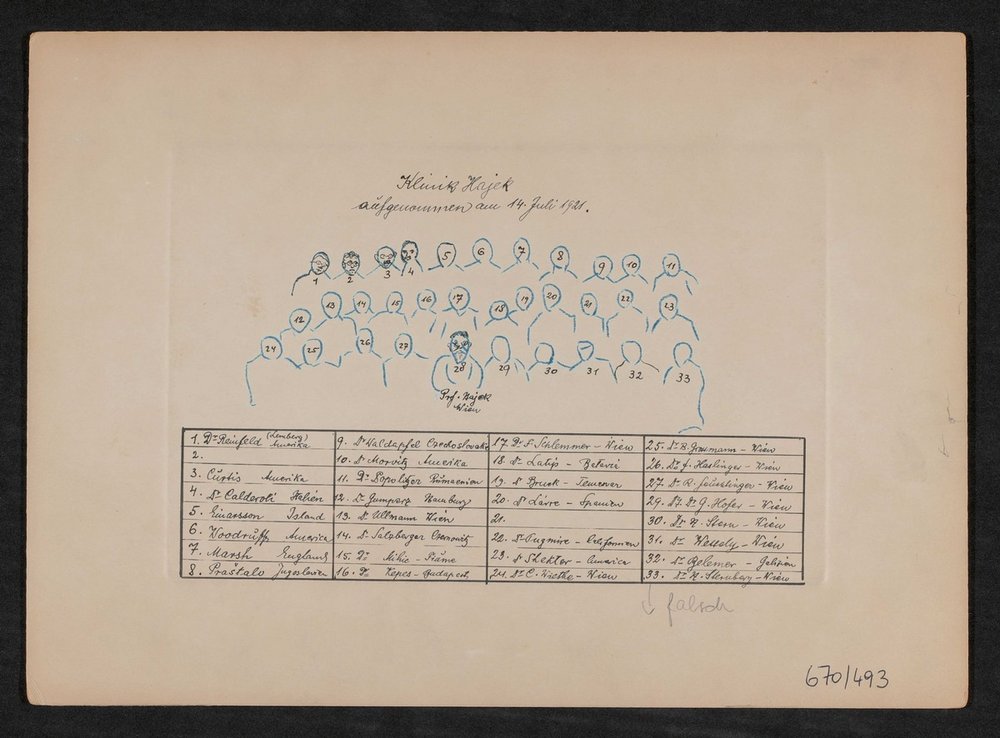 Klinik Hajek
aufgenommen am 14. Juli 1921.
1 2 3 4 5 6 7 8 9 10 11
12 13 14 15 16 17 18 19 20 21 22 23
24 25 26 27 28 29 30 31 32 33
Prof. Hajek
Wien
1. Dr Reinfeld (Lemberg) Amerika
2.
3. Curtis Amerika
4. Dr Calderoli Italien
5. Einarsson Island
6. Woodruff America
7. Marsh England
8. Praštalo Jugoslavien
9. Dr Waldapfel Czechoslovakei
10. Dr Morvitz Amerika
11. Dr Rumaenien
12. Dr Gumperz Hamburg
13. Dr Ullmann Wien
14. Dr Salzberger Czernovitz
15. Dr Mihic - Fiume
16. Dr Kepes - Budapest,
17. Dr F. Schlemmer - Wien
18. Dr - Batavia
19. Dr Bruck - Temesvar
20. Dr - Spanien
21.
22. Dr Pugmire - Californien
23. Dr Shektor - America
24. Dr C. Wiethe - Wien
25. Dr B. Grossmann - Wien
26. Dr F. Haslinger - Wien
27. Dr R. - Wien
29. Dr G. Hofer - Wien
30. Dr H. Stern - Wien
31. Dr Wessely - Wien
32. Dr - Galizien
33. Dr H. Sternberg - Wien
↓ falsch
670/493